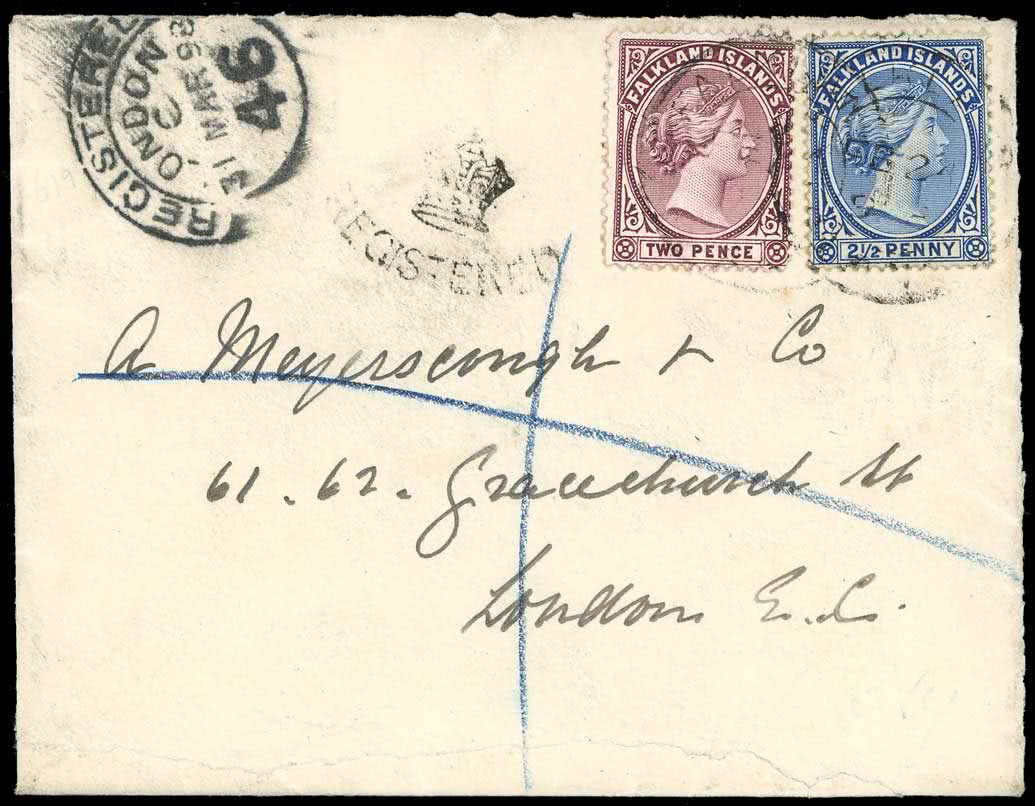 REGISTERED
LONDON
31 MAR 98
46
REGISTERED
FALKLAND ISLANDS
TWO PENCE
FALKLAND ISLANDS
2½ PENNY
A Meyerscongh & Co
61.62. Gracechurch St
London E.C.